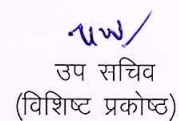 उप सचिव
(विशिष्ट प्रकोष्ठ)